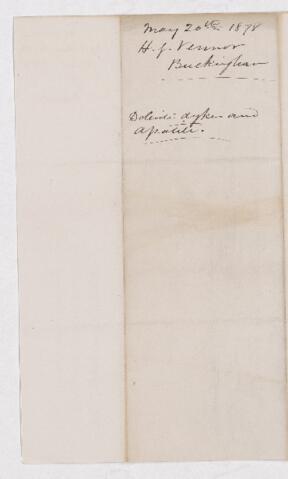 May 20th 1878
H. G. Vennor
Buckingham
Dolerite dykes and
Apatite.